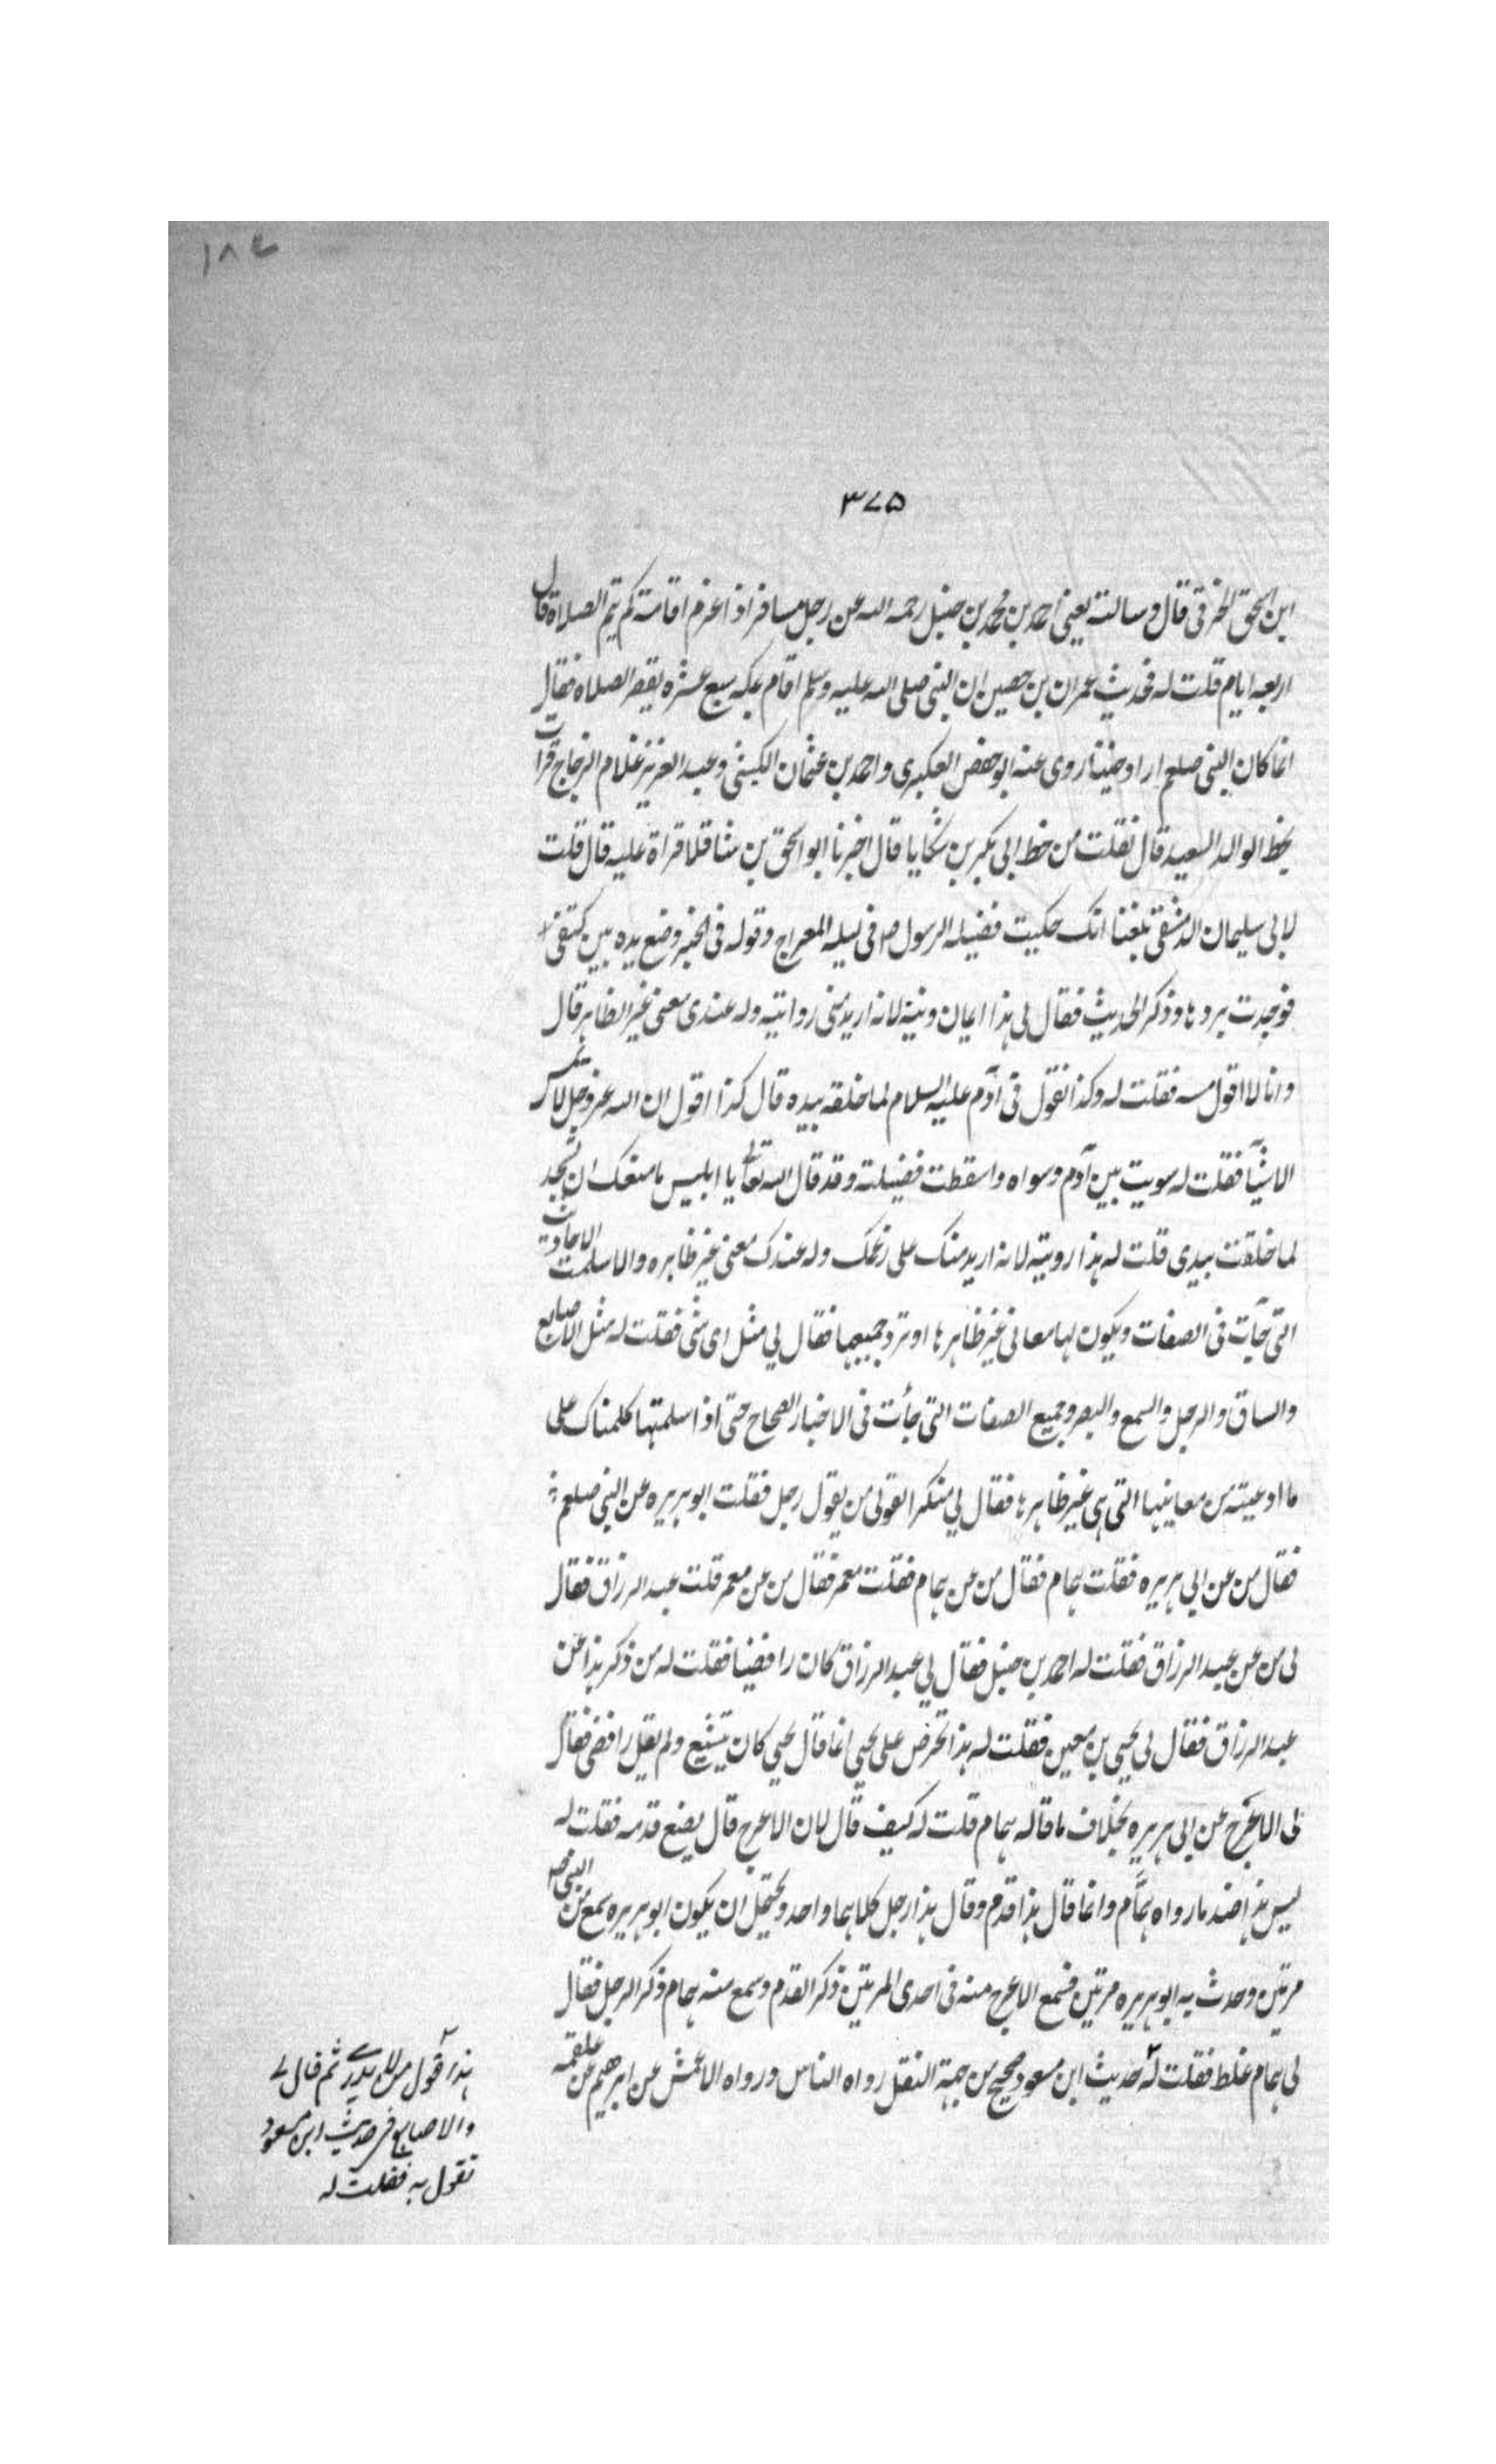 ١٨٤
٣٧٥
ابن اسحق الخرقى قال وسالته يعنى احمد بن محمد بن حنبل رحمه الله عن رجل مسافر اذا عزم اقامة كم يتم الصلاة قال
اربعه ايام قلت له فحديث عمران بن حصين ان النبى صلى الله عليه وسلم اقام بمكه سبع عشره يقصر الصلاه فقال
انما كان النبى صلعم اراد حنينا روى عنه ابو حفص العكبرى واحمد بن عثمان الكبشى وعبد العزيز غلام الزجاج قرات
بخط الوالد السعيد قال نقلت من خط ابى بكر بن شكاپا قال اخبرنا ابو اسحق بن شاقلا قراة عليه قال قلت
لابى سليمان الدمشقى بلغنا انك حكيت فضيله الرسول صم فى ليله المعراج وقوله فى الخبر وضع يده بين كتفى
فوجدت بردها وذكر الحديث فقال لى هذا ايمان ونية لانه اريد منى روايته وله عندى معنى غير الظاهر قال
وانا لا اقول مسه فقلت له وكذا تقول فى آدم عليه السلام لما خلقه بيده قال كذا اقول ان الله عز وجل لا يمس
الاشيآ فقلت له سويت بين آدم وسواه واسقطت فضيلته وقد قال الله تعالى يا ابليس ما منعك ان تسجد
لما خلقت بيدى قلت له هذا رويته لانه اريد منك على زعمك وله عندك معنى غير ظاهره والا سلمت الاحاديث
التى جآت فى الصفات ويكون لها معانى غير ظاهرها او ترد جميعها فقال لي مثل اى شى فقلت له مثل الاصابع
والساق والرجل والسمع والبصر وجميع الصفات التى جأت فى الاخبار الصحاح حتى اذا سلمتها كلمناك على
ما ادعيته من معانيها التى هى غير ظاهرها فقال لي منكرا لقولى من يقول رجل فقلت ابو هريره عن النبى صلعم
فقال من عن ابى هريره فقلت همام فقال من عن همام فقلت معمر فقال من عن معمر قلت عبد الرزاق فقال
لى من عن عبد الرزاق فقلت له احمد بن حنبل فقال لي عبد الرزاق كان رافضيا فقلت له من ذكر هذا عن
عبد الرزاق فقال لى يحيى بن معين فقلت له هذا تخرص على يحيى انما قال يحيى كان يتشيع ولم يقل رافضى فقال
لى الاعرج عن ابى هريره بخلاف ما قاله همام قلت له كيف قال لان الاعرج قال يضع قدمه فقلت له
ليس هذا ضد ما رواه همّام وانما قال هذا قدم وقال هذا رجل كلاهما واحد ويحتمل ان يكون ابو هريره سمع من النبى صم
مرتين وحدث به ابو هريره مرتين فسمع الاعرج منه فى احدى المرتين ذكر القدم وسمع منه همام ذكر الرجل فقال
لى همام غلط فقلت له حديث ابن مسعود صحيح من جهة النقل رواه الناس ورواه الاعمش عن ابرهيم عن علقمه
هذا قول من لا يدرى ثم قال لى
والاصابع فى حديث ابن مسعود
تقول به فقلت له